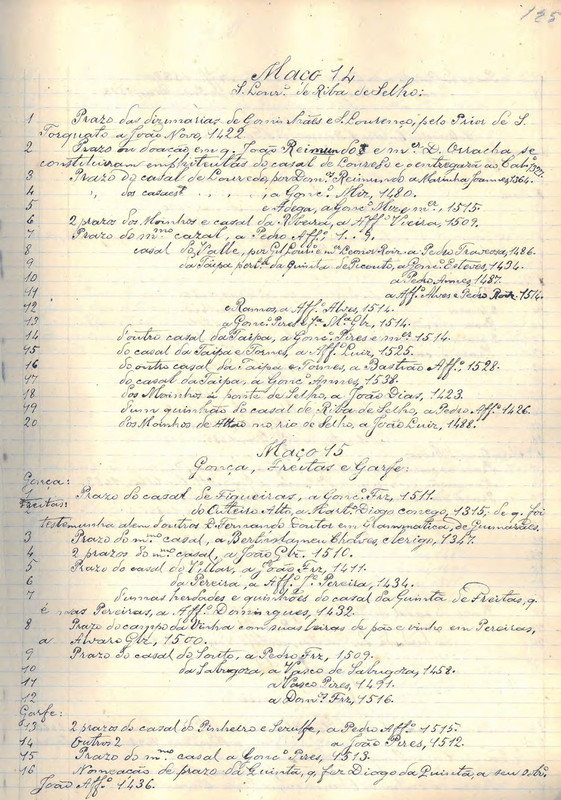 125
Maço 14
S. Lourº. de Riba de Selho:
1 Prazo das dizimarias de Gominhães e S. Lourenço, pelo Prior de S.
Torquato a João Novo, 1422.
2 Prazo ou doação em q. João Reimundo e mer. D. Orracha se
constituiram emphiteutas do casal de Louredo e o entregarão ao Cabº.
3 Prazo do casal de Louredo, por Domºs. Reimundo a Marinha Joannes, 1364.
4 " dos casaes " . . . . , a Gonçº. Miz, 1480.
5 e Adega, a Gonçº. Miz e mer., 1515.
6 2 prazos dos Moinhos e casal da Ribeira, a Affº. Vieira, 1509.
7 Prazo do mmo. cazal, a Pedro Affº. 1..9.
8 casal do Valle, por Gil Lourº. e mer. Leonor Roiz. a Pedro Travessa, 1486.
9 da Taipa per da Quinha de Piconto, a Gonçº. Esteves, 1434.
10 a Pedro Annes, 1487.
11 a Affº. Alves e Pedro Roiz. 1514.
12 e Ramos, a Affº. Alves, 1514.
13 a Gonçº. Pires e Fª. Mª. Glz, 1514.
14 doutro casal da Taipa, a Gonçº. Pires e mer. 1514.
15 do casal da Taipa e Tornos, a Affº. Luiz, 1525.
16 do outro casal da Taipa e Tornos, a Bastião Affº. 1528.
17 do casal da Taipa, a Gonçº. Annes, 1538.
18 dos Moinhos á ponte de Selho, a João Dias, 1423.
19 dum quinhão do casal de Riba de Selho, a Pedro Affº. 1426.
20 dos Moinhos de no rio de Selho, a João Luiz, 1488.
Maço 15
Gonça, Freitas e Garfe:
Gonça:
1 Prazo do casal de Figueiras, a Gonçº. Frz, 1511.
Freitas: do Outeiro Alto, a Martº. Diogo conego, 1315, de q. foi
testemunha alem doutros L. Fernando Doutor em Grammatica, de Guimarães.
3 Prazo do mmo. casal, a Bertholameu Chalves, clerigo, 1347.
4 2 prazos do mmo. casal, a João Glz. 1510.
5 Prazo do casal do Villar, a João Frz, 1411.
6 da Pereira, a Affº. Pereira, 1434.
7 dumas herdades e quinhões do casal da Quinta de Freitas, q.
é nas Pereiras, a Affº. Domingues, 1432.
8 Prazo do campo da Vinha com suas leiras de pão e vinho em Pereiras,
a Alvaro Glz, 1500.
9 Prazo do casal do Souto, a Pedro Frz, 1509.
10 da Sabugoza, a Vasco de Sabugoza, 1458.
11 a Vasco Pires, 1491.
12 a Domºs. Frz, 1516.
Garfe:
13 2 prazos do casal do Pinheiro e Seruffe, a Pedro Affº. 1515.
14 Outros 2 a João Pires, 1512.
15 Prazo do mmo. casal a Gonçº. Pires, 1513.
16 Nomeação de prazo da Quintã, q. fez Diogo da Quintã, a seu sobrº.
João Affº. 1436.